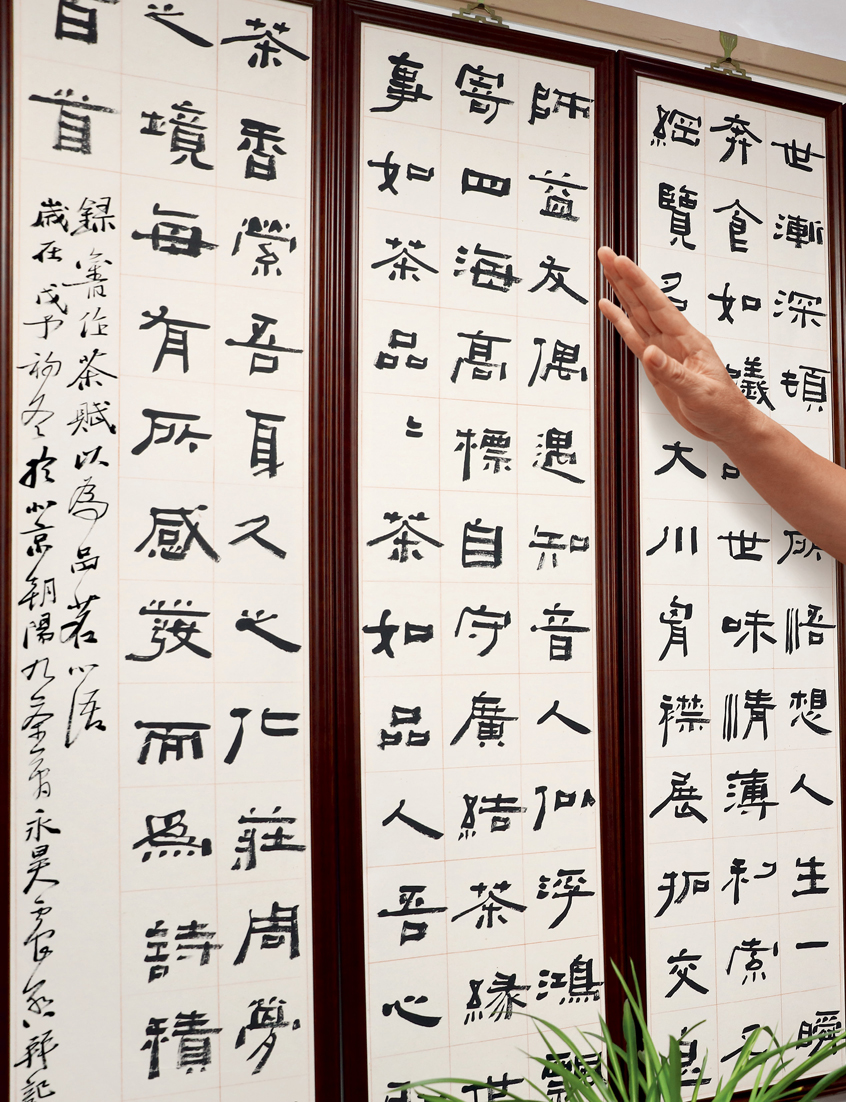 世漸深頓所悟想人生一瞬
奔食如蟻世味情薄利索
綱覽名大川胷襟展拓交息
師益友偶遇知音人似浮鴻飄
寄四海高標自守廣結茶緣世
事如茶品〻茶如品人吾心
茶香縈吾耳久之仁莊周夢
之境每有所感發而為詩積
百首
錄舊作茶賦以為品茗心語
歲在戊子初冬於北京朝陽九永昊記